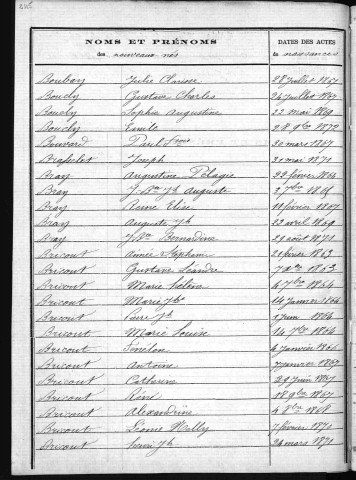 NOMS ET PRÉNOMS
des nouveaux-nés
DATES DES ACTES
de naissances
Boubay Julie Clarisse 28 Juillet 1867
Boucly Gustave Charles 26 Juillet 1867
Boucly Sophie Augustine 22 mai 1869
Boucly Emile 28 9bre 1872
Bouvard Paul 30 mars 1867
Brapelet Joseph 21 mai 1871
Bray Augustine Pélagie 22 février 1864
Bray Jn Bte Jh Auguste 2 7bre 1865
Bray Anne Elise 11 février 1867
Bray Auguste Jh 23 avril 1869
Bray Bernardine 28 août 1871
Bricout Aimée Stéphanie 21 février 1863
Bricout Gustave Léandre 7 1863
Bricout Marie Hélène 6 7bre 1864
Bricout Marie 14 Janvier 1866
Bricout Jh 1 Juin 1866
Bricout Marie Louise 14 7bre 1866
Bricout Siméon 6 Janvier 1866
Bricout Antoine 7 Janvier 1867
Bricout Catherine 29 Juin 1867
Bricout René 18 9bre 1867
Bricout Alexandrine 4 8bre 1868
Bricout Léonie Nelly 7 février 1870
Bricout Henri Jh 24 mars 1870